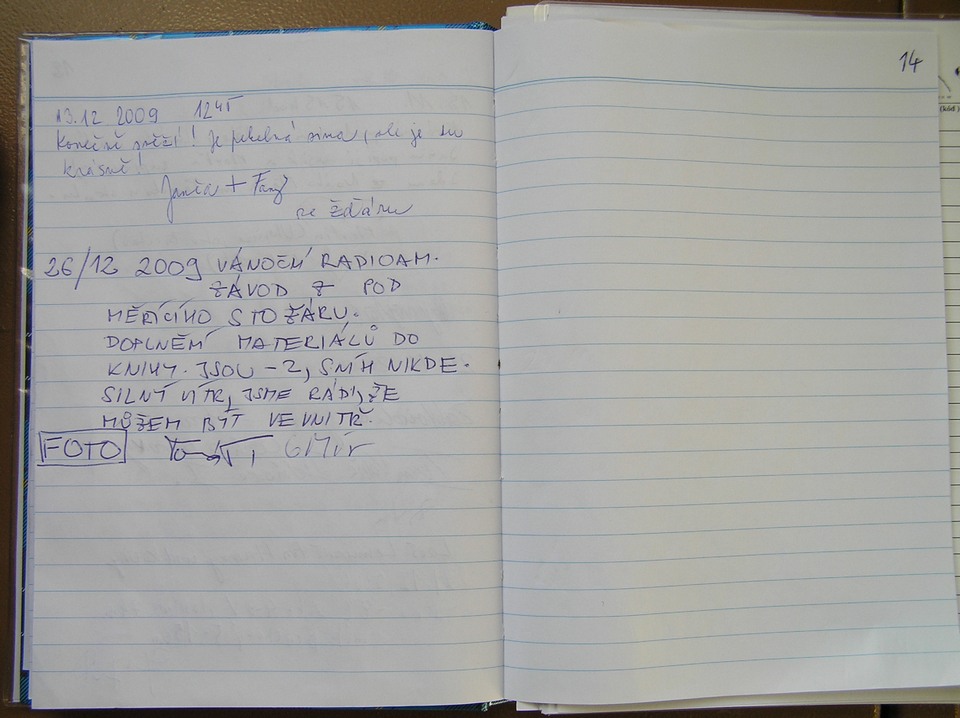 13.12 2009 12 45
Konečně sněží! Je pekelná zima, ale je tu
krásně!
Janča + Fany
ze Žďáru
26/12 2009 VÁNOČNÍ RADIOAM.
ZÁVOD Z POD
MĚŘÍCÍHO STOŽÁRU.
DOPLNĚNÍ MATERIÁLŮ DO
KNIHY. JSOU -2, SNÍH NIKDE.
SILNÝ VÍTR, JSME RÁDI, ŽE
MŮŽEM BÝT VEVNITŘ.
FOTO
14